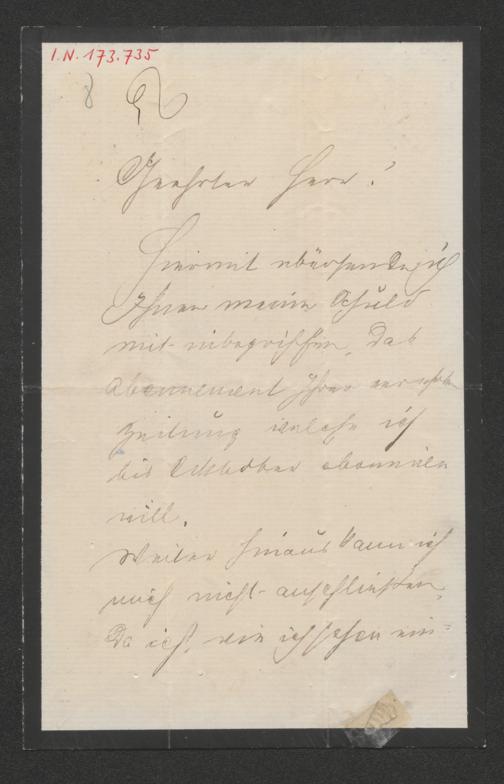 I.N. 173.735
8
Geehrter Herr!
Hiermit übersende ich
Ihnen meine Schuld
mit inbegriffen, das
Abonnement Ihrer
Zeitung welche ich
bis Oktober
will.
Weiter hinaus kann ich
mich nicht anschließen,
Da ich, wie ich schon ein=